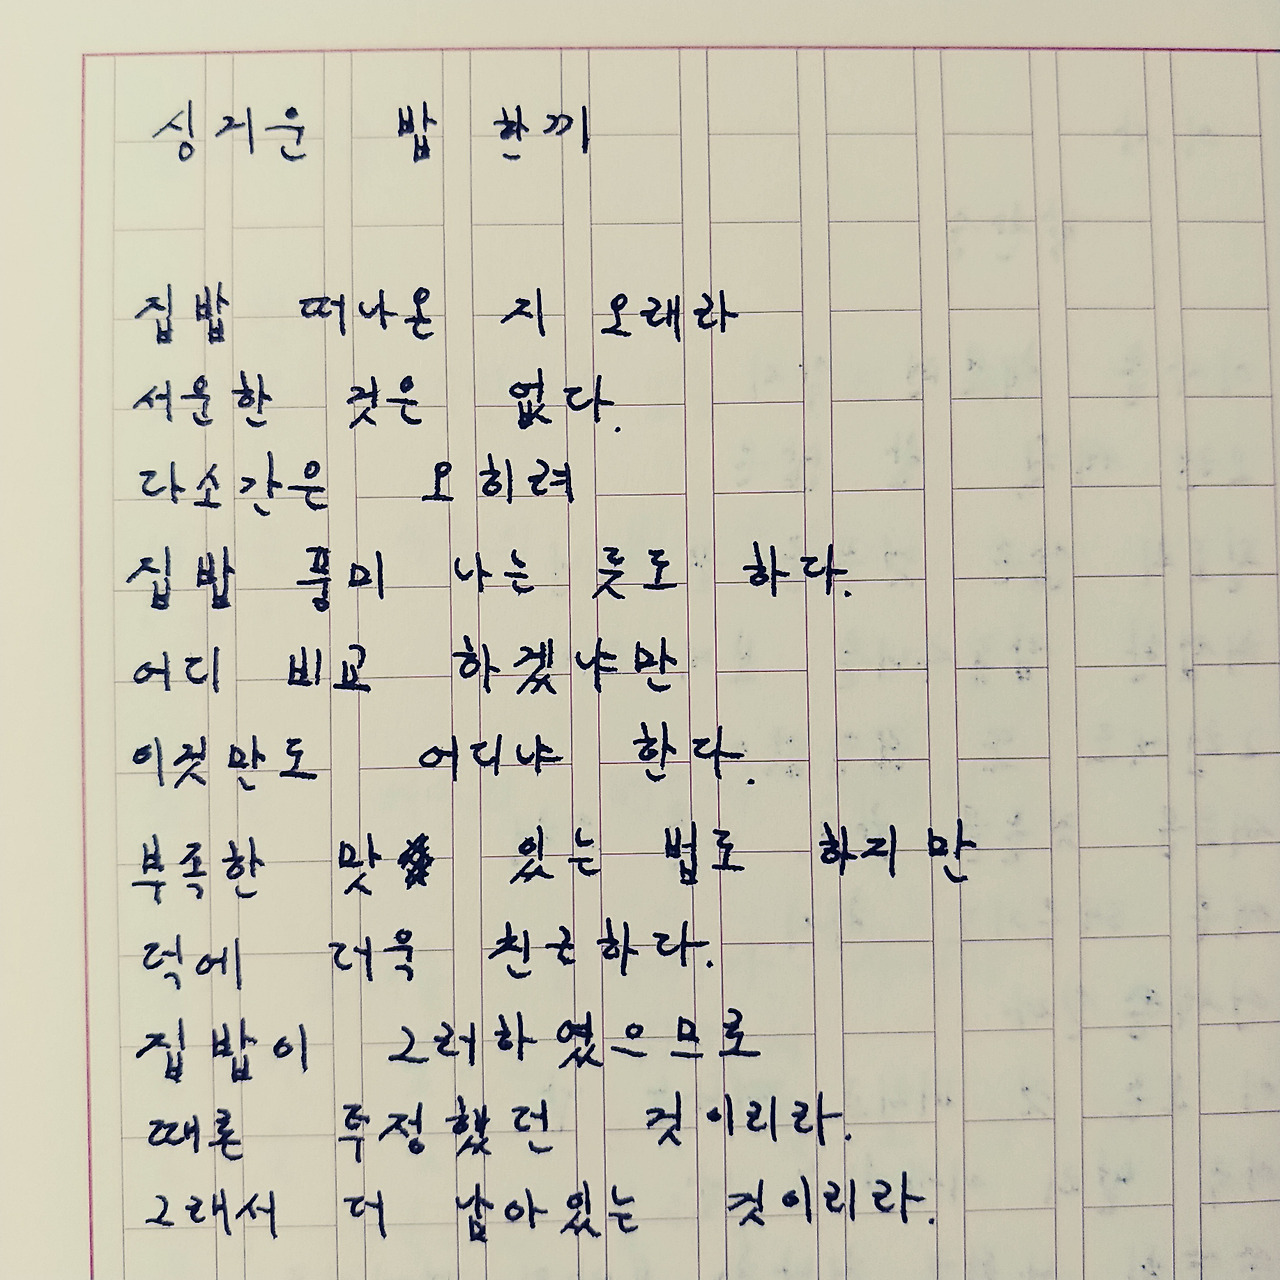 싱거운 밥 한끼
집밥 떠나온 지 오래라
서운한 것은 없다.
다소간은 오히려
집밥 풍미 나는 듯도 하다.
어디 비교 하겠냐만
이것만도 어디냐 한다.
부족한 맛 있는 법도 하지만
덕에 더욱 친근하다.
집밥이 그러하였으므로
때론 투정했던 것이리라.
그래서 더 남아있는 것이리라.